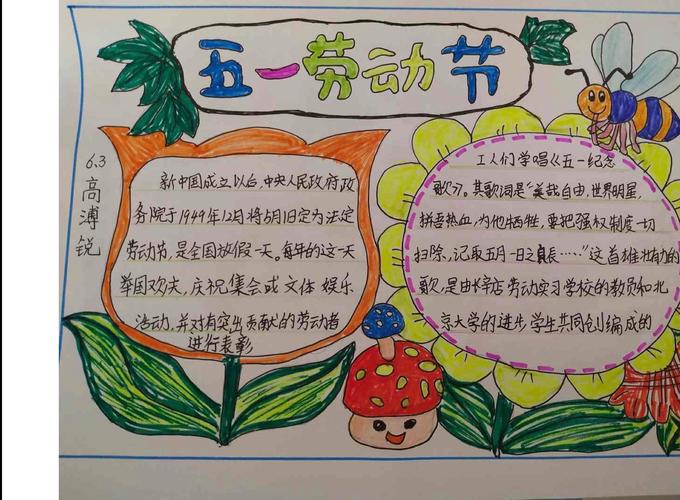 五一劳动节
6.3
高溥锐
新中国成立以后,中央人民政府政
务院于1949年12月将5月1日定为法定
劳动节,是全国放假一天。每年的这一天
举国欢庆,庆祝集会或文体娱乐
活动,并对有突出贡献的劳动者
进行表彰
工人们学唱《五一纪念
歌》。其歌词是"美哉自由,世界明星,
拼吾热血,为他牺牲,要把强权制度一切
扫除,记取五月一日之良辰……"这首雄壮有力的
歌,是由长辛店劳动实习学校的教员和北
京大学的进步学生共同创编成的